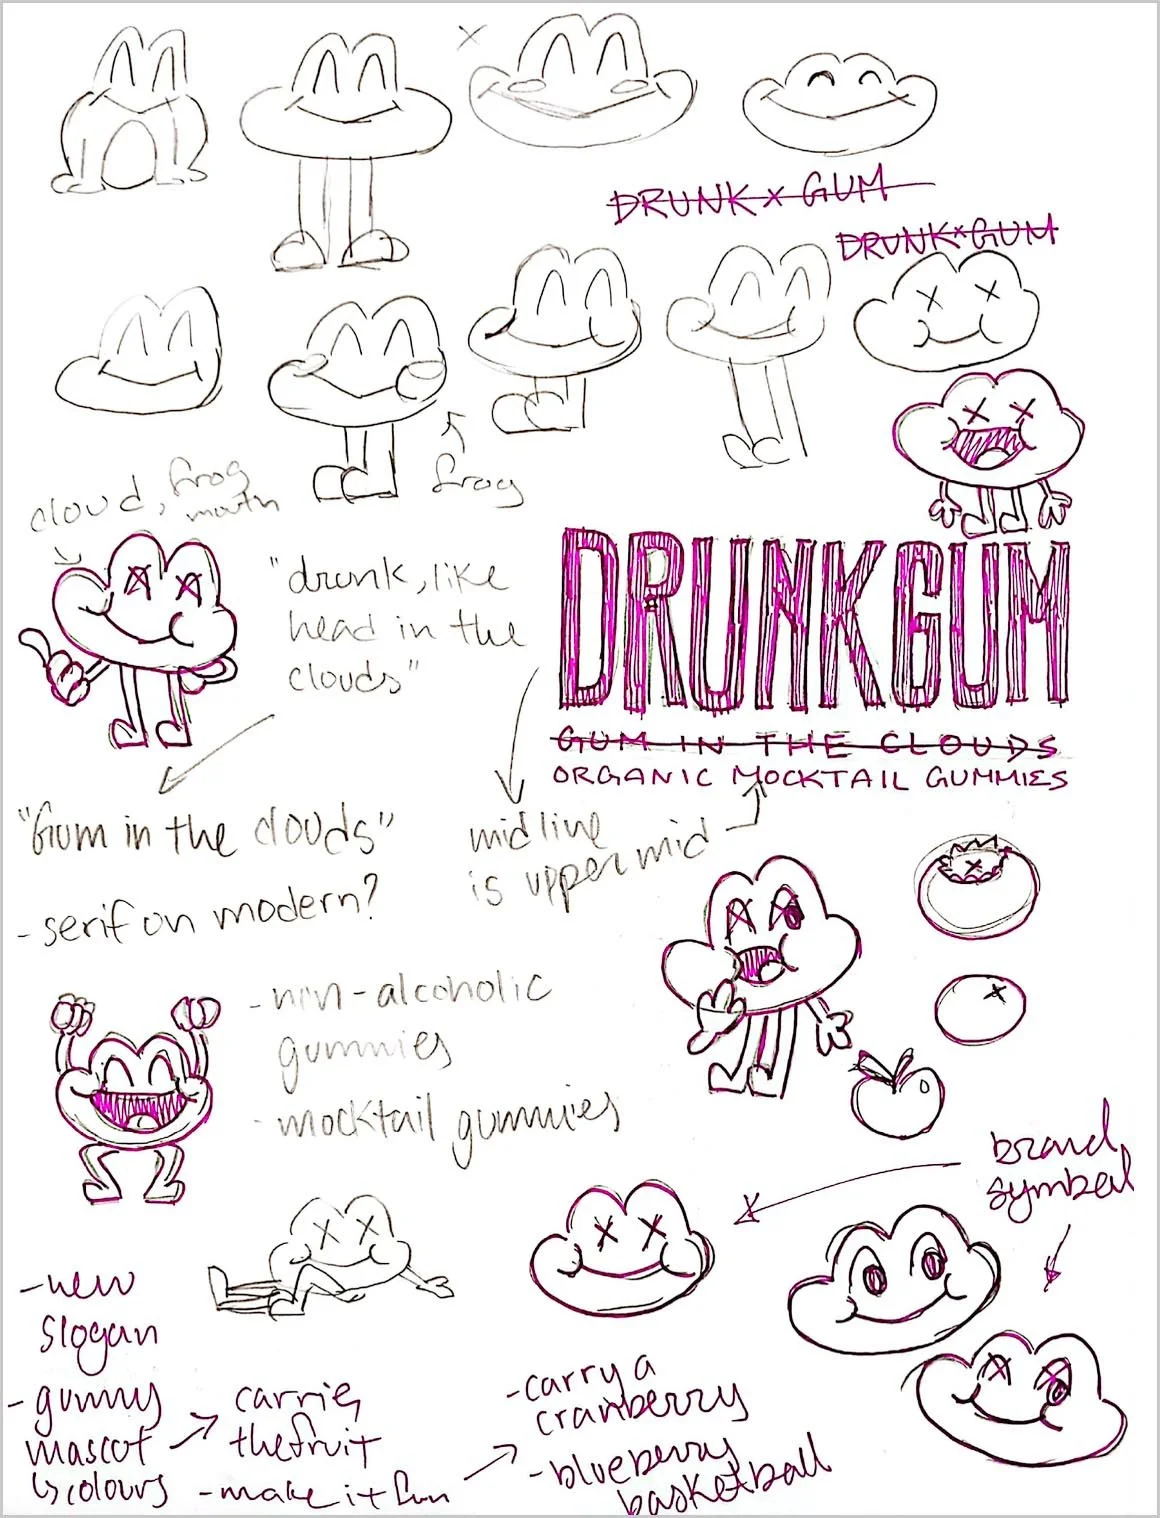 DRUNK x GUM
DRUNK x GUM
cloud, frog
mouth
frog
"drunk, like
head in the
clouds"
DRUNKGUM
GUM IN THE CLOUDS
ORGANIC MOCKTAIL GUMMIES
"Gum in the clouds"
- serif on modern?
midline
is upper mid
- non-alcoholic
gummies
- mocktail gummies
brand
symbol
- new
slogan
- gummy
mascot
↳ colours
carries
the fruit
- make it fun
- carry a
cranberry
- blueberry
basketball